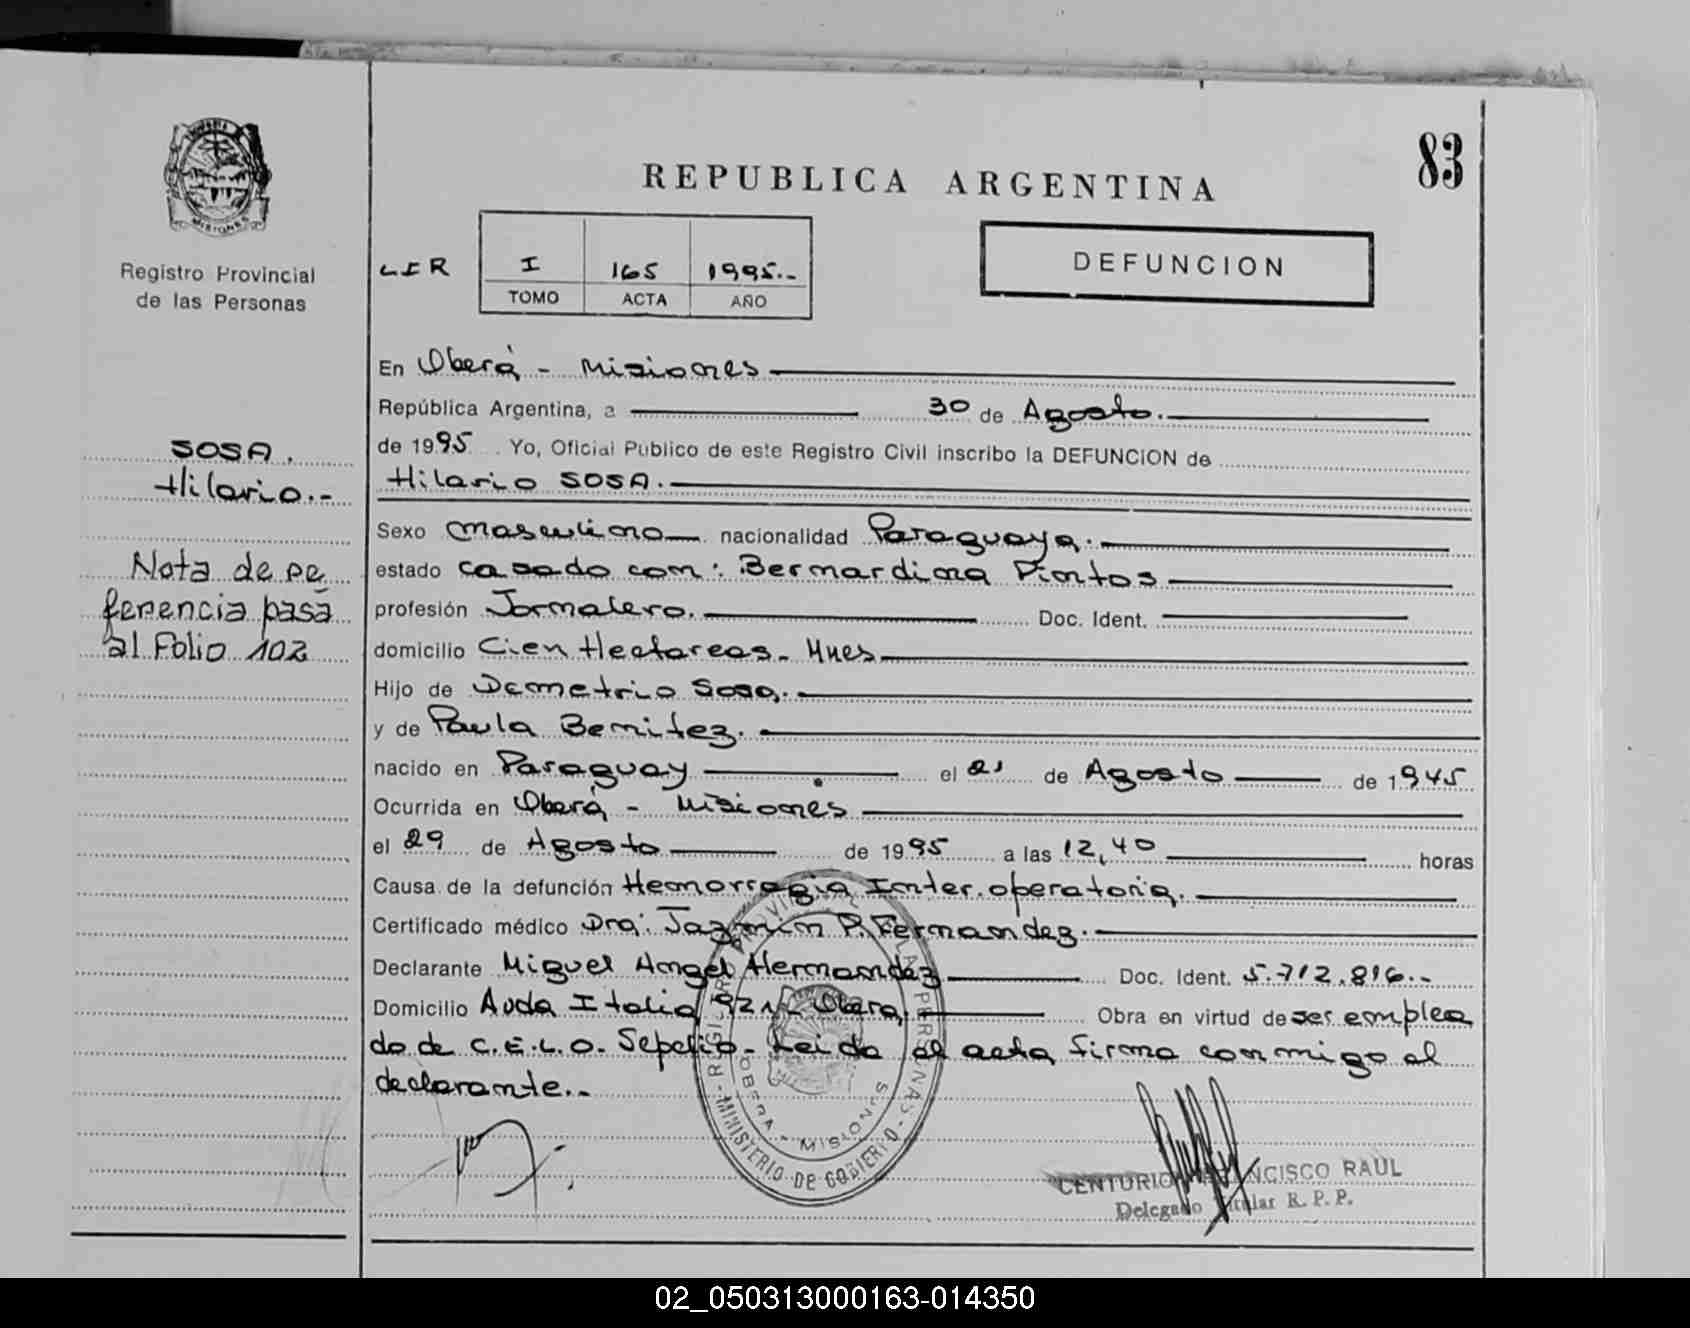 83
REPUBLICA ARGENTINA
MISIONES
Registro Provincial
de las Personas
LIR
I 165 1995.-
TOMO ACTA AÑO
DEFUNCION
En Oberá - Misiones
República Argentina, a 30 de Agosto.
SOSA.
Hilario.-
de 1995. Yo, Oficial Publico de este Registro Civil inscribo la DEFUNCION de
Hilario SOSA.
Nota de re
ferencia pasa
al Folio 102
Sexo masculino nacionalidad Paraguaya.
estado casado con: Bernardina Pintos
profesión Jornalero. Doc. Ident.
domicilio Cien Hectareas - Mnes
Hijo de Demetrio Sosa.
y de Paula Benitez.
nacido en Paraguay el 21 de Agosto de 1945
Ocurrida en Oberá - Misiones
el 29 de Agosto de 1995 a las 12,40 horas
Causa de la defunción Hemorragia Inter.operatoria.
Certificado médico Dra. Jazmin P. Fernandez.
Declarante Miguel Angel Hernandez Doc. Ident. 5.712.816.-
Domicilio Avda Italia 921 - Oberá. Obra en virtud de ser emplea
do de C.E.L.O. Sepelio - Leida el acta firma conmigo el
declarante..
REGISTRO PROVINCIAL DE LAS PERSONAS - MINISTERIO DE GOBIERNO -
OBERA - MISIONES
CENTURION FRANCISCO RAUL
Delegado Titular R. P. P.
02_050313000163-014350